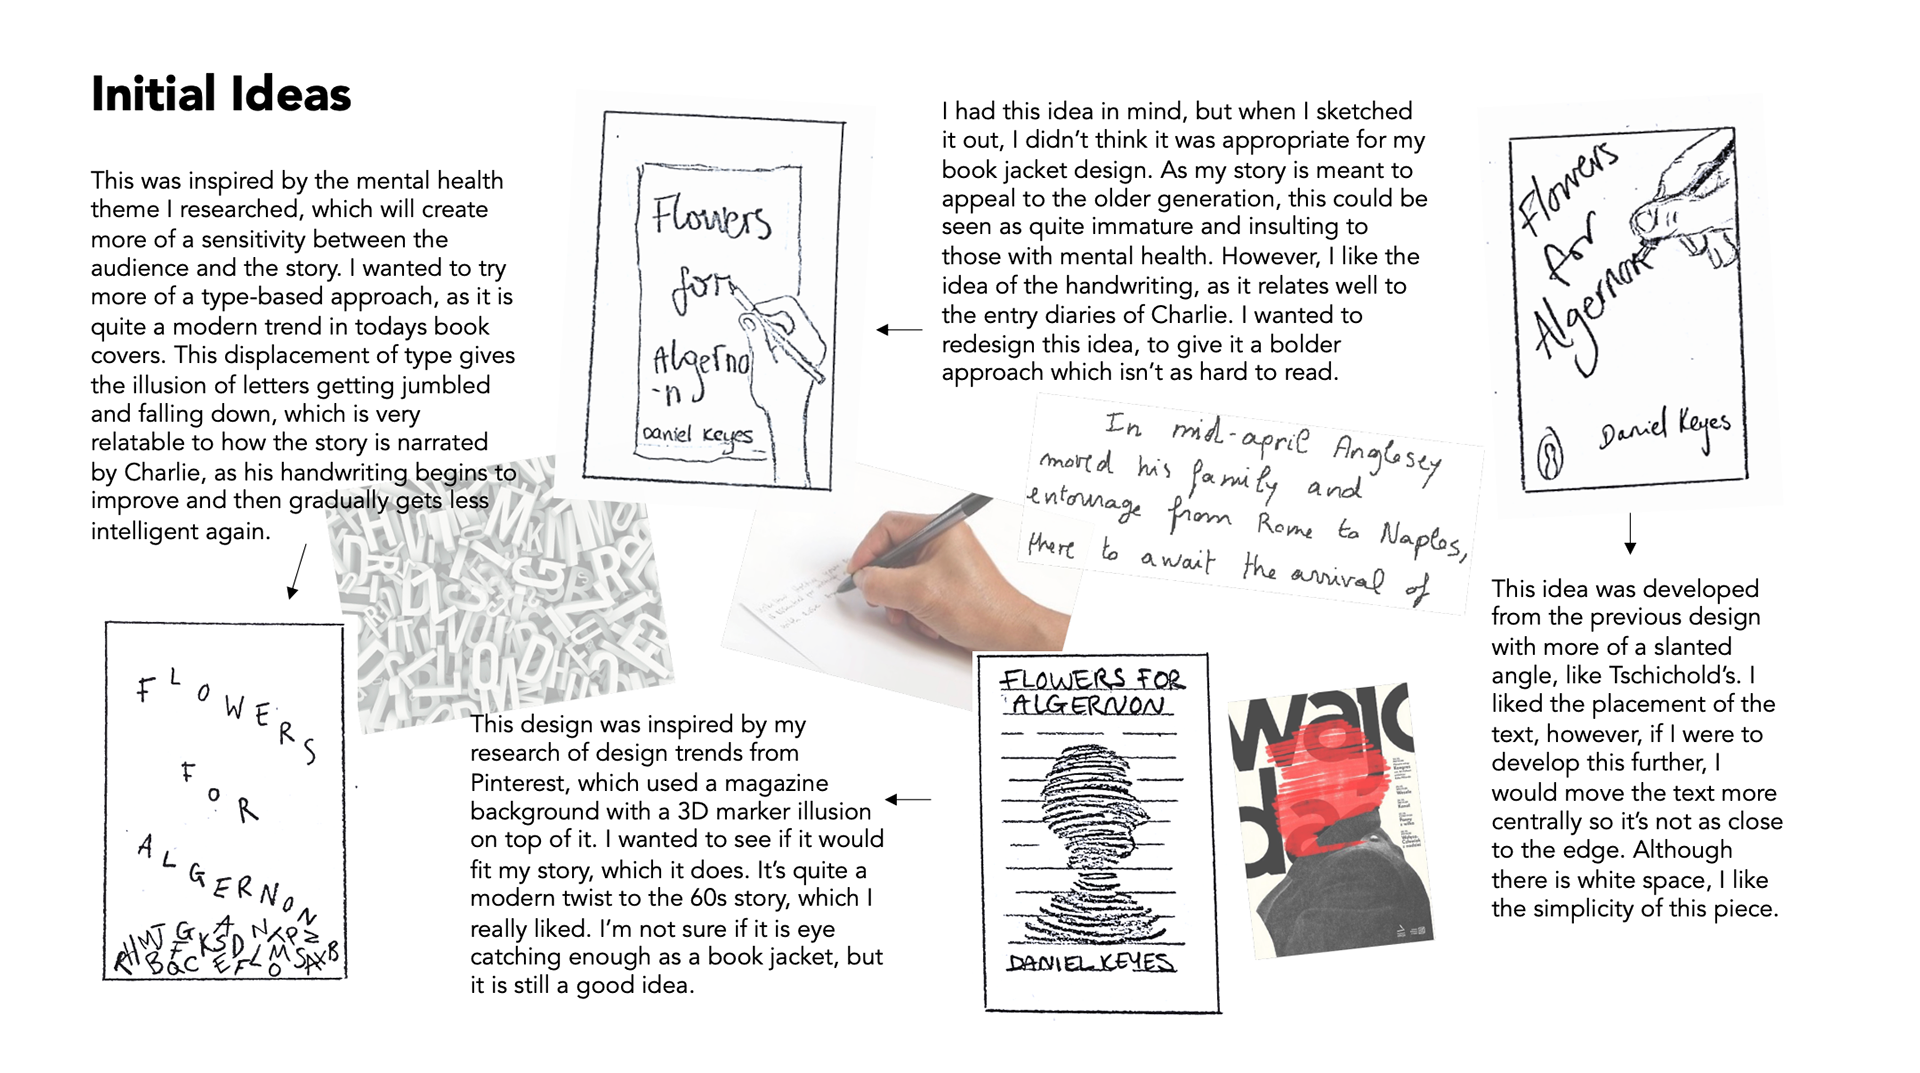 Initial Ideas
This was inspired by the mental health
theme I researched, which will create
more of a sensitivity between the
audience and the story. I wanted to try
more of a type-based approach, as it is
quite a modern trend in todays book
covers. This displacement of type gives
the illusion of letters getting jumbled
and falling down, which is very
relatable to how the story is narrated
by Charlie, as his handwriting begins to
improve and then gradually gets less
intelligent again.
FLOWERS
FOR
ALGERNON
Flowers
for
Algerno
-n
Daniel Keyes
I had this idea in mind, but when I sketched
it out, I didn’t think it was appropriate for my
book jacket design. As my story is meant to
appeal to the older generation, this could be
seen as quite immature and insulting to
those with mental health. However, I like the
idea of the handwriting, as it relates well to
the entry diaries of Charlie. I wanted to
redesign this idea, to give it a bolder
approach which isn’t as hard to read.
In mid-april Anglesey
moved his family and
entourage from Rome to Naples,
there to await the arrival of
This design was inspired by my
research of design trends from
Pinterest, which used a magazine
background with a 3D marker illusion
on top of it. I wanted to see if it would
fit my story, which it does. It’s quite a
modern twist to the 60s story, which I
really liked. I’m not sure if it is eye
catching enough as a book jacket, but
it is still a good idea.
FLOWERS FOR
ALGERNON
DANIEL KEYES
Flowers
for
Algernon
Daniel Keyes
This idea was developed
from the previous design
with more of a slanted
angle, like Tschichold’s. I
liked the placement of the
text, however, if I were to
develop this further, I
would move the text more
centrally so it’s not as close
to the edge. Although
there is white space, I like
the simplicity of this piece.